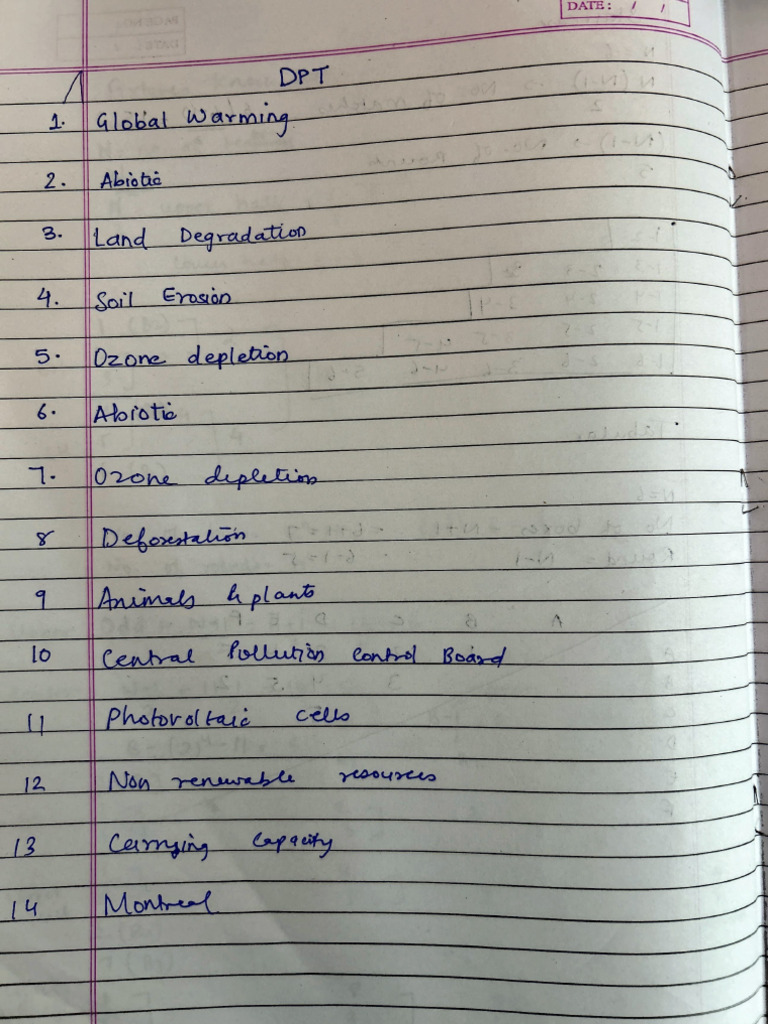 DATE: / /
DPT
1. Global Warming
2. Abiotic
3. Land Degradation
4. Soil Erosion
5. Ozone depletion
6. Abiotic
7. Ozone depletion
8 Deforestation
9 Animals & plants
10 Central Pollution Control Board
11 Photovoltaic cells
12 Non renewable resources
13 Carrying Capacity
14 Montreal